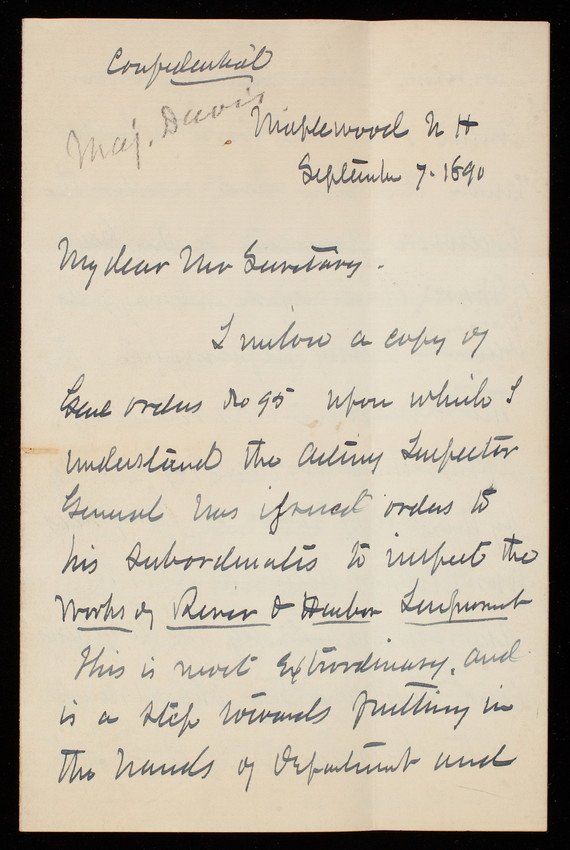 Confidential
Maj. Davis
Maplewood N H
September 7. 1890
My dear Mr Secretary.
I inclose a copy of
Genl orders No 95 upon which I
understand the Acting Inspector
General has issued orders to
his subordinates to inspect the
Works of River & Harbor Improvmt
This is most extraordinary, and
is a step towards putting in
the hands of Department and